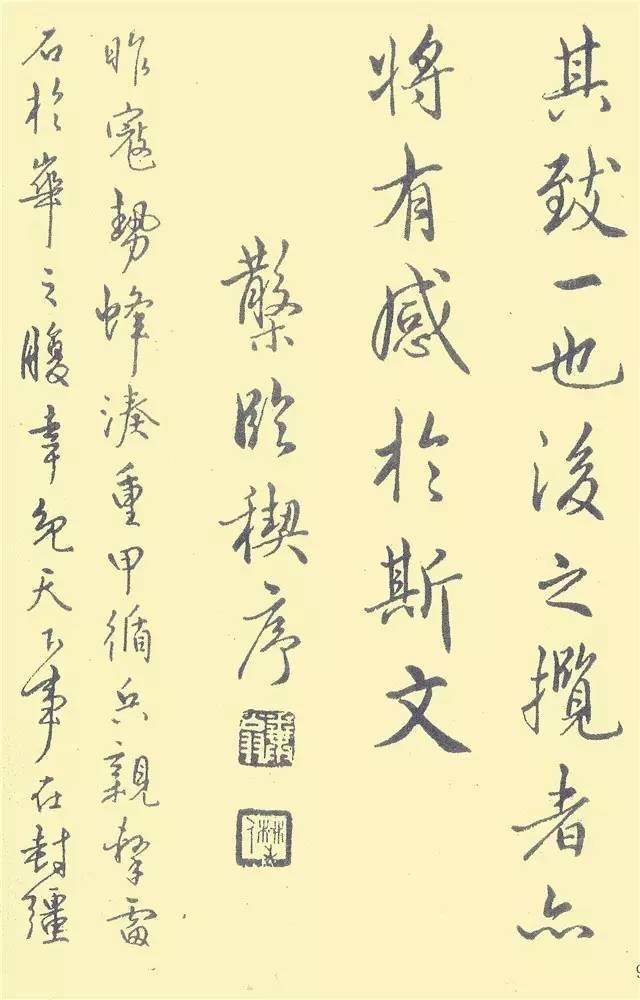 其致一也後之攬者亦
將有感於斯文
散木臨禊序
昨寇勢蜂湊重甲循兵親擎雷
石於華之腹幸免天下事在封疆